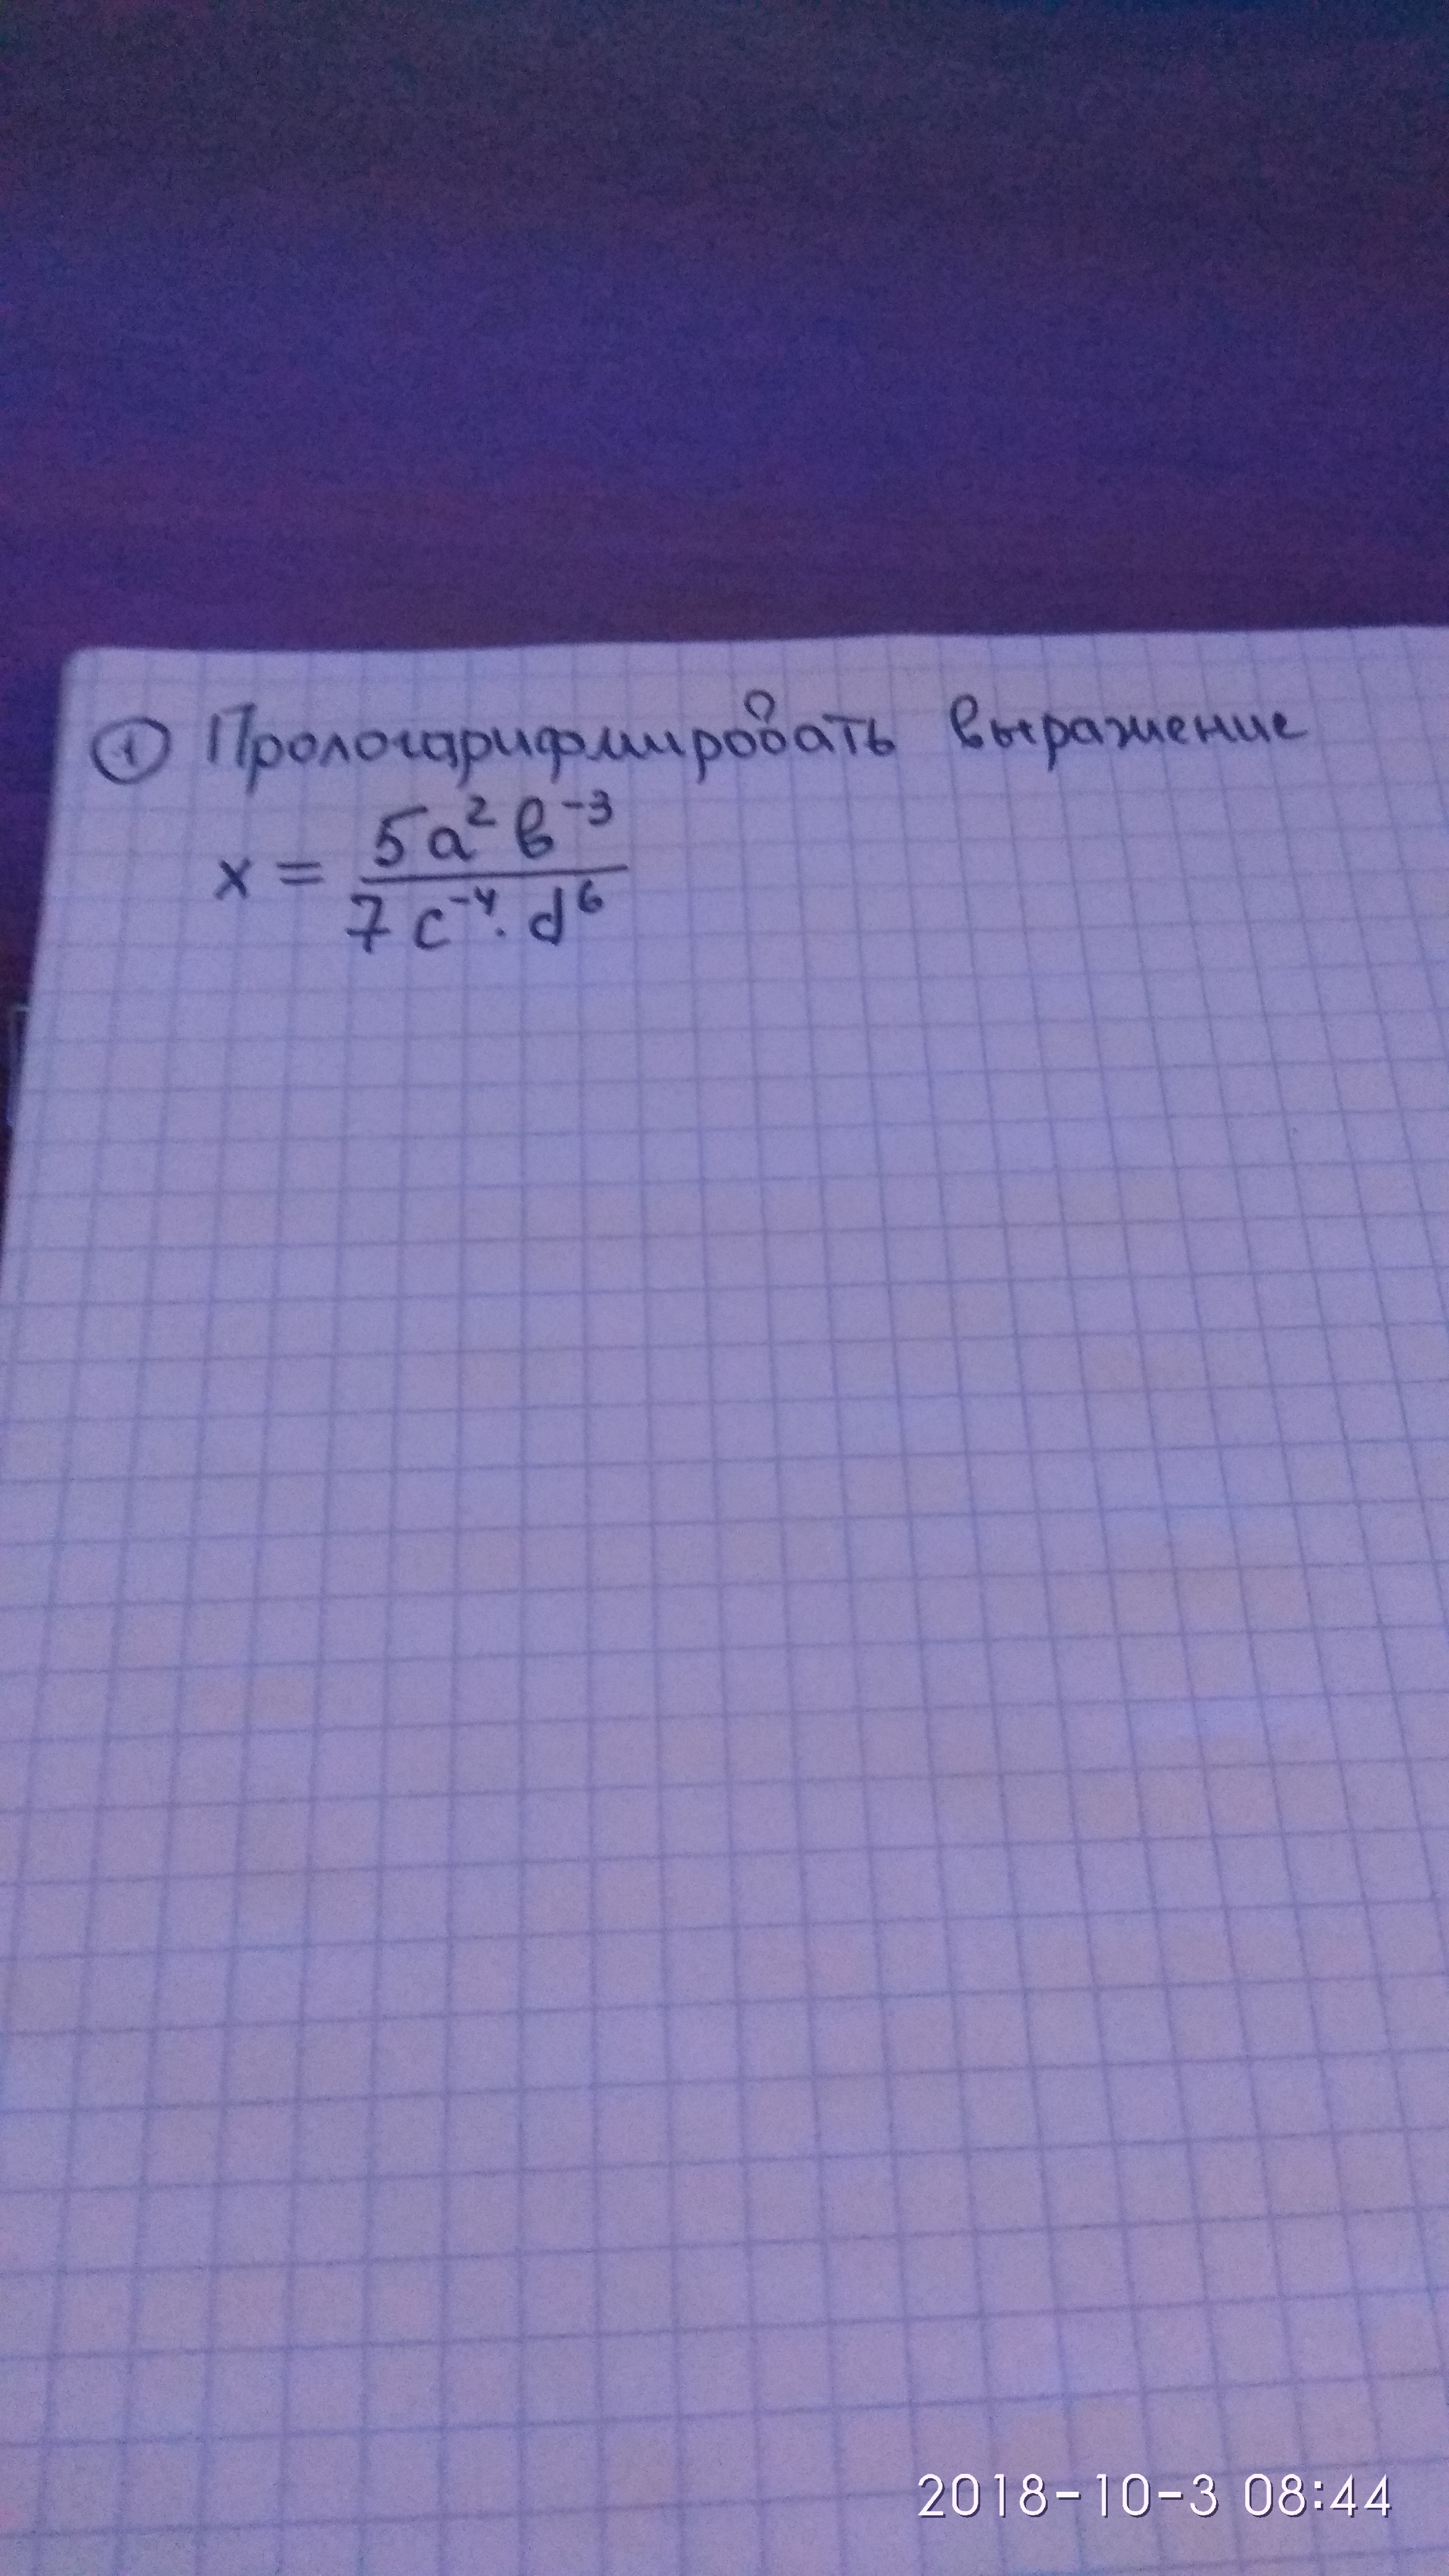 ① Прологарифмировать выражение
x = \frac{5a^2 b^{-3}}{7c^{-4} \cdot d^6}
2018-10-3 08:44